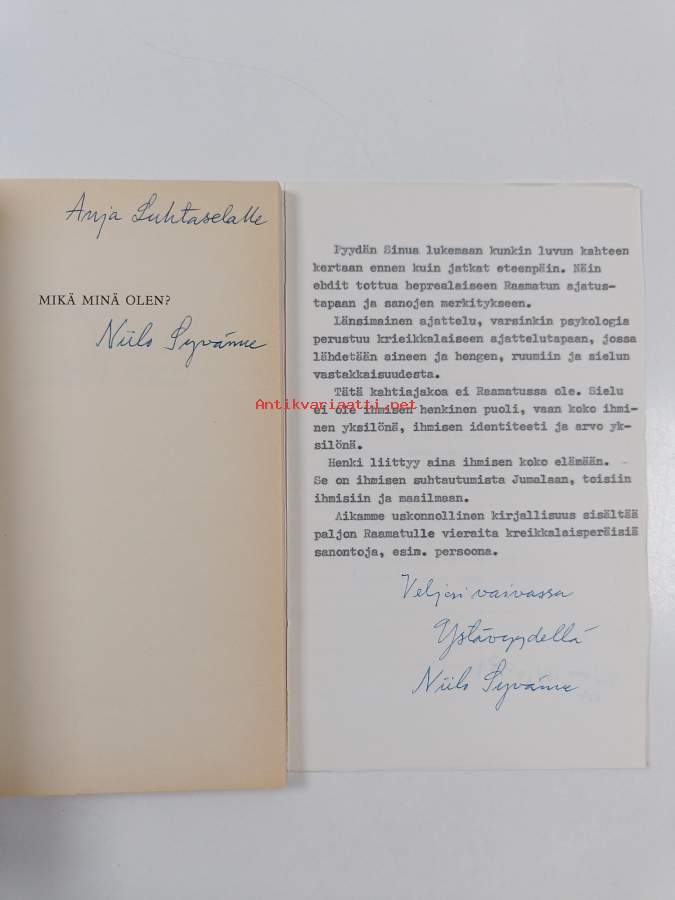 Anja Luhtaselalle
MIKÄ MINÄ OLEN?
Niilo Syvänne
Pyydän Sinua lukemaan kunkin luvun kahteen
kertaan ennen kuin jatkat eteenpäin. Näin
ehdit tottua heprealaiseen Raamatun ajatus-
tapaan ja sanojen merkitykseen.
Länsimainen ajattelu, varsinkin psykologia
perustuu krieikkalaiseen ajattelutapaan, jossa
lähdetään aineen ja hengen, ruumiin ja sielun
vastakkaisuudesta.
Tätä kahtiajakoa ei Raamatussa ole. Sielu
Antikvariaatti.net
ei ole ihmisen henkinen puoli, vaan koko ihmi-
nen yksilönä, ihmisen identiteeti ja arvo yk-
silönä.
Henki liittyy aina ihmisen koko elämään.
Se on ihmisen suhtautumista Jumalaan, toisiin
ihmisiin ja maailmaan.
Aikamme uskonnollinen kirjallisuus sisältää
paljon Raamatulle vieraita kreikkalaisperäisiä
sanontoja, esim. persoona.
Veljesi vaivassa
Ystävyydellä
Niilo Syvänne